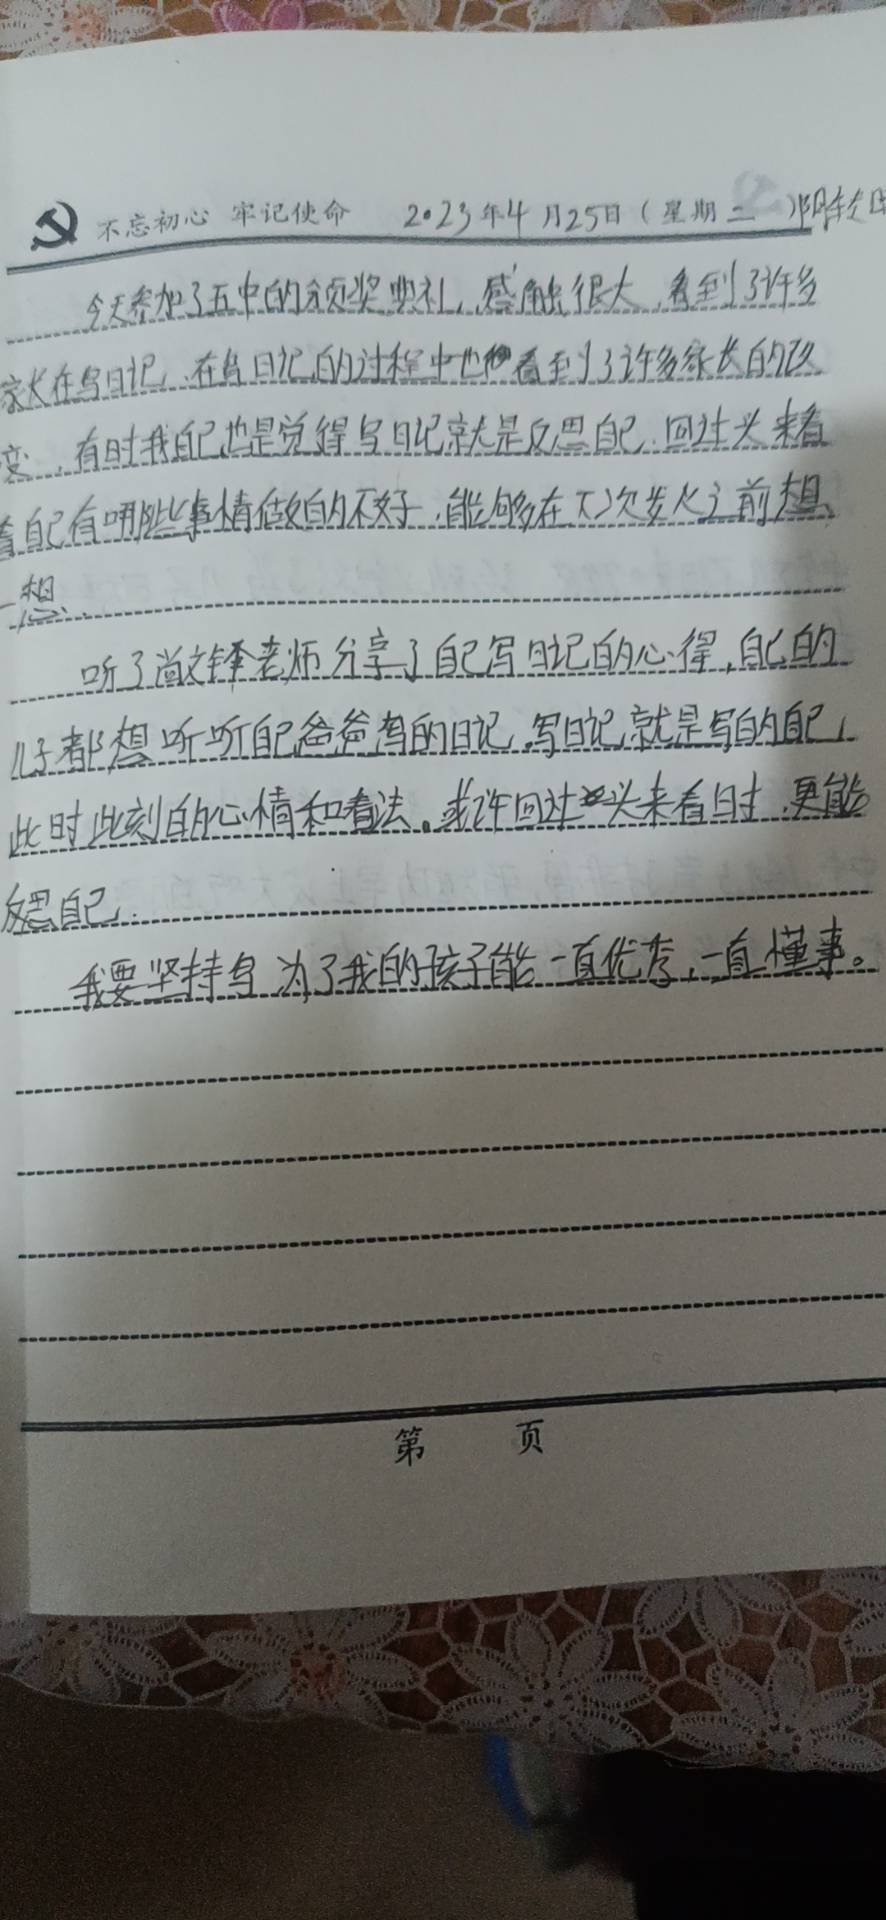 不忘初心 牢记使命 2023年4月25日(星期二)阴转
今天参加了五中的颁奖典礼,感触很大,看到了许多
家长在写日记,在写日记的过程中也看到了许多家长的改
变,有时我自己也是觉得写日记就是反思自己,回过头来看
看自己有哪些事情做的不好,能够在下次发火之前想
一想.
听了尚文锋老师分享了自己写日记的心得,自己的
儿子都想听听自己爸爸写的日记,写日记就是写的自己
此时此刻的心情和看法。或许回过头来看时,更能
反思自己.
我要坚持写,为了我的孩子能一直优秀,一直懂事。
第 页